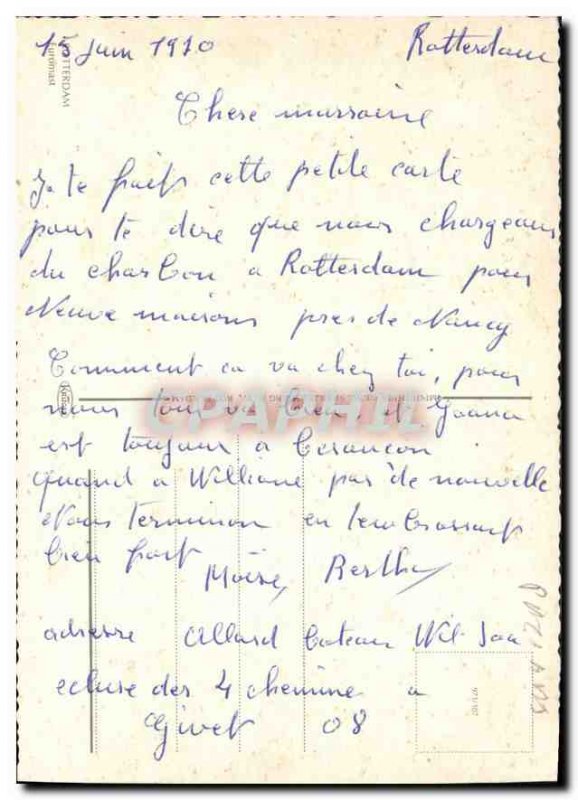 15 Juin 1970 Rotterdam
ROTTERDAM
Euromast
Chere marraine
Je te fait cette petite carte
pour te dire que nous chargeons
du charbon a Rotterdam pour
Neuve maisons pres de Nancy
Comment ca va chez toi, pour
nous tout va bien et
est toujour a Besancon
quand a William pas de nouvelle
Nous terminon en tembrassant
bien fort Moïse, Berthe
adresse Allard bateau Wil-Joa
ecluse des 4 chemine a
Givet 08
CPAPHIL